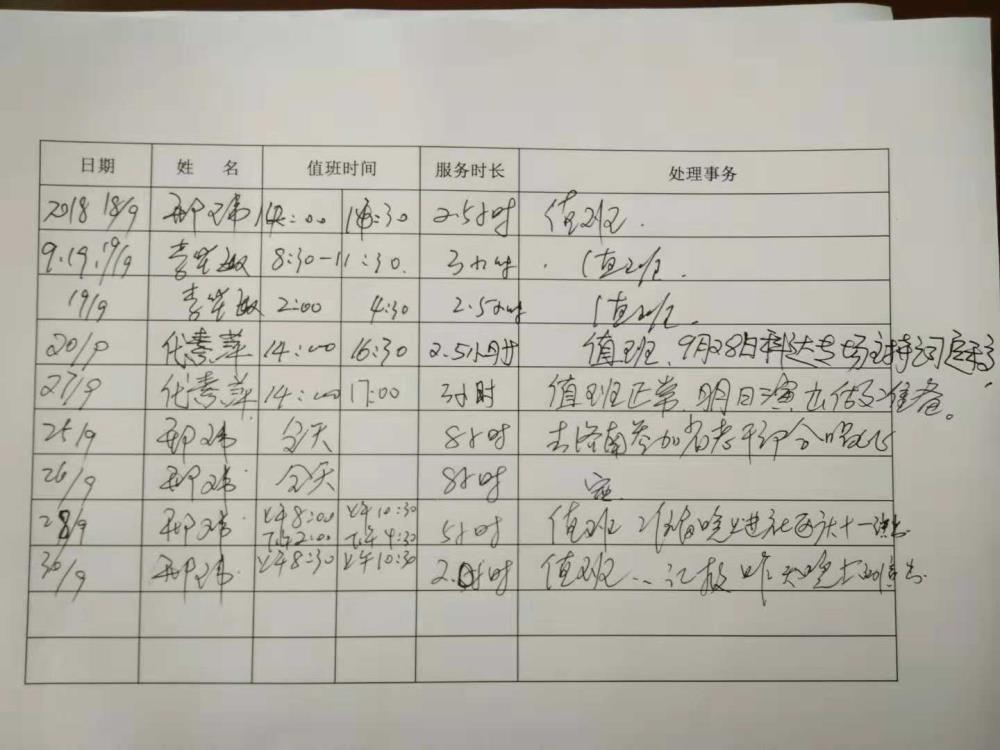 日期 姓 名 值班时间 服务时长 处理事务
2018 18/9 邢玉玮 14:00 16:30 2.5小时 值班.
9.19.19/9 李笑敏 8:30-11:30. 3小时 . 值班.
19/9 李笑敏 2:00 4:30 2.5小时 值班.
20/9 代素萍 14:00 16:30 2.5小时 值班.9月28日 专场主持词定稿,
27/9 代素萍 14:00 17:00 3小时 值班正常.明日演出做好准备。
25/9 邢玉玮 全天 8小时 去济南参加
26/9 邢玉玮 全天 8小时
28/9 邢玉玮 上午8:00 上午10:30 5小时 值班 晚 进社区 十一
下午2:00 下午4:30
30/9 邢玉玮 上午8:30 上午10:30 2.0小时 值班.. 汇报昨天晚上 演出.